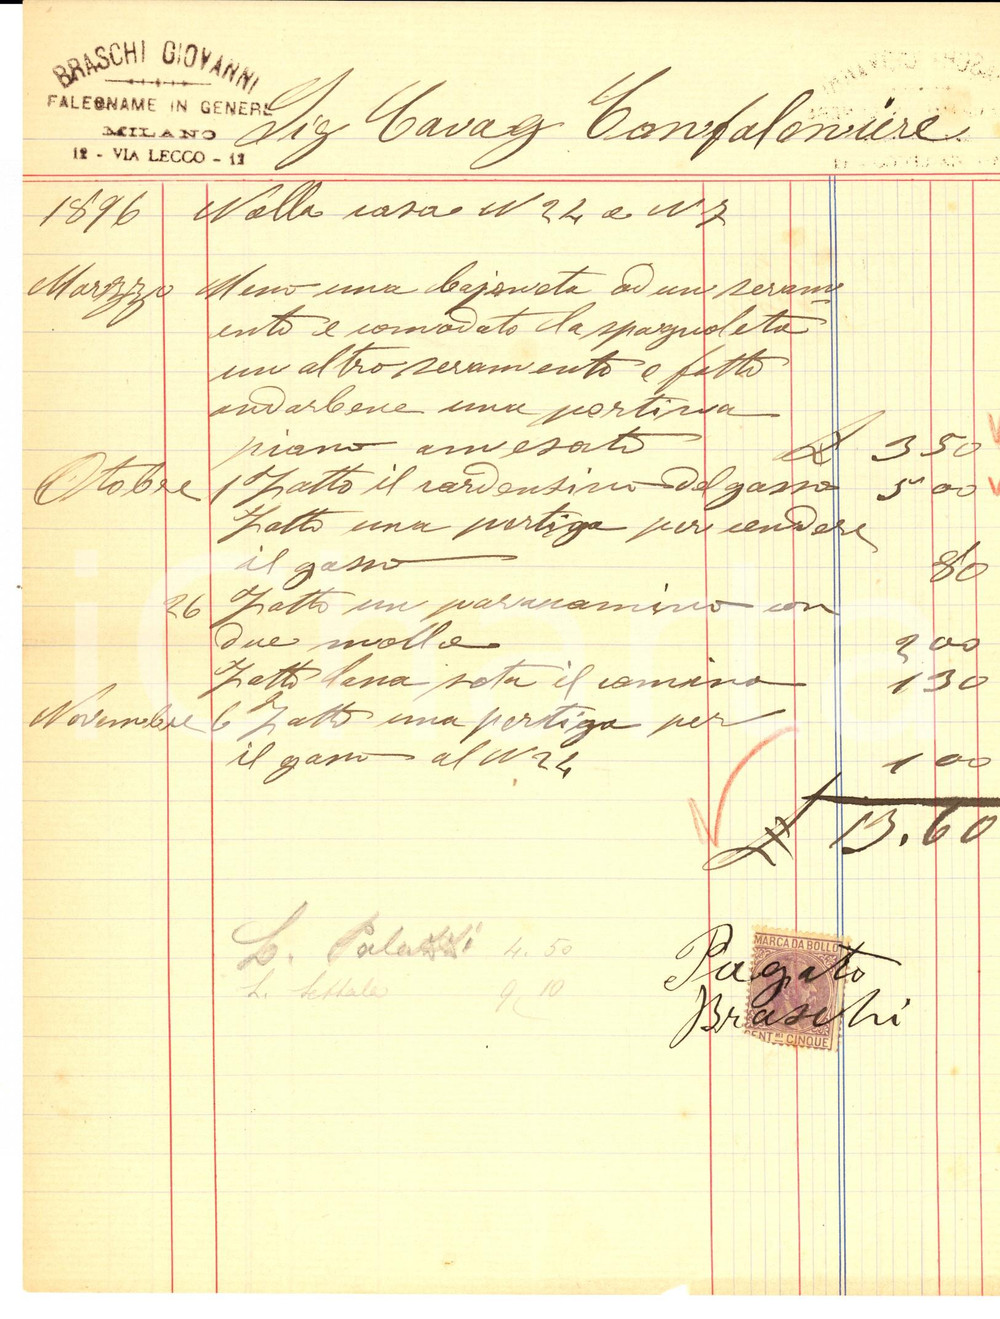 BRASCHI GIOVANNI
FALEGNAME IN GENERE
MILANO
12 - VIA LECCO - 12
Sig Cavag Confaloniere
1896 Nella casa N 24 e N 7
Marzzo Meso una bajoneta ad un seram
ento e comodato la spagnoleta
un altro seramento e fatto
andarbene una portina
piano amesato L 3 50
Otobre 1 Fatto il cardensino del gasso 5 00
Fatto una pertiga per cendere
il gasso 80
26 Fatto un paracamino con
due molle 2 00
Fatto lana sota il camino 1 30
Novembre 6 Fatto una pertiga per
il gasso al N 24 1 00
L 13.60
L. Palazzi 4. 50
L. Settala 9 10
MARCA DA BOLLO
Pagato
Braschi
CENT.MI CINQUE
iCharta